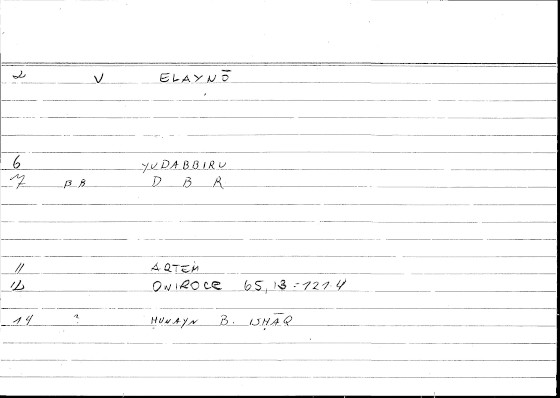 2 V ELAYNŌ
6 YUDABBIRU
7 BB D B R
11 ARTEM
12 ONIROCR 65,13 = 121.4
14 ? ḤUNAYN B. ISḤĀQ